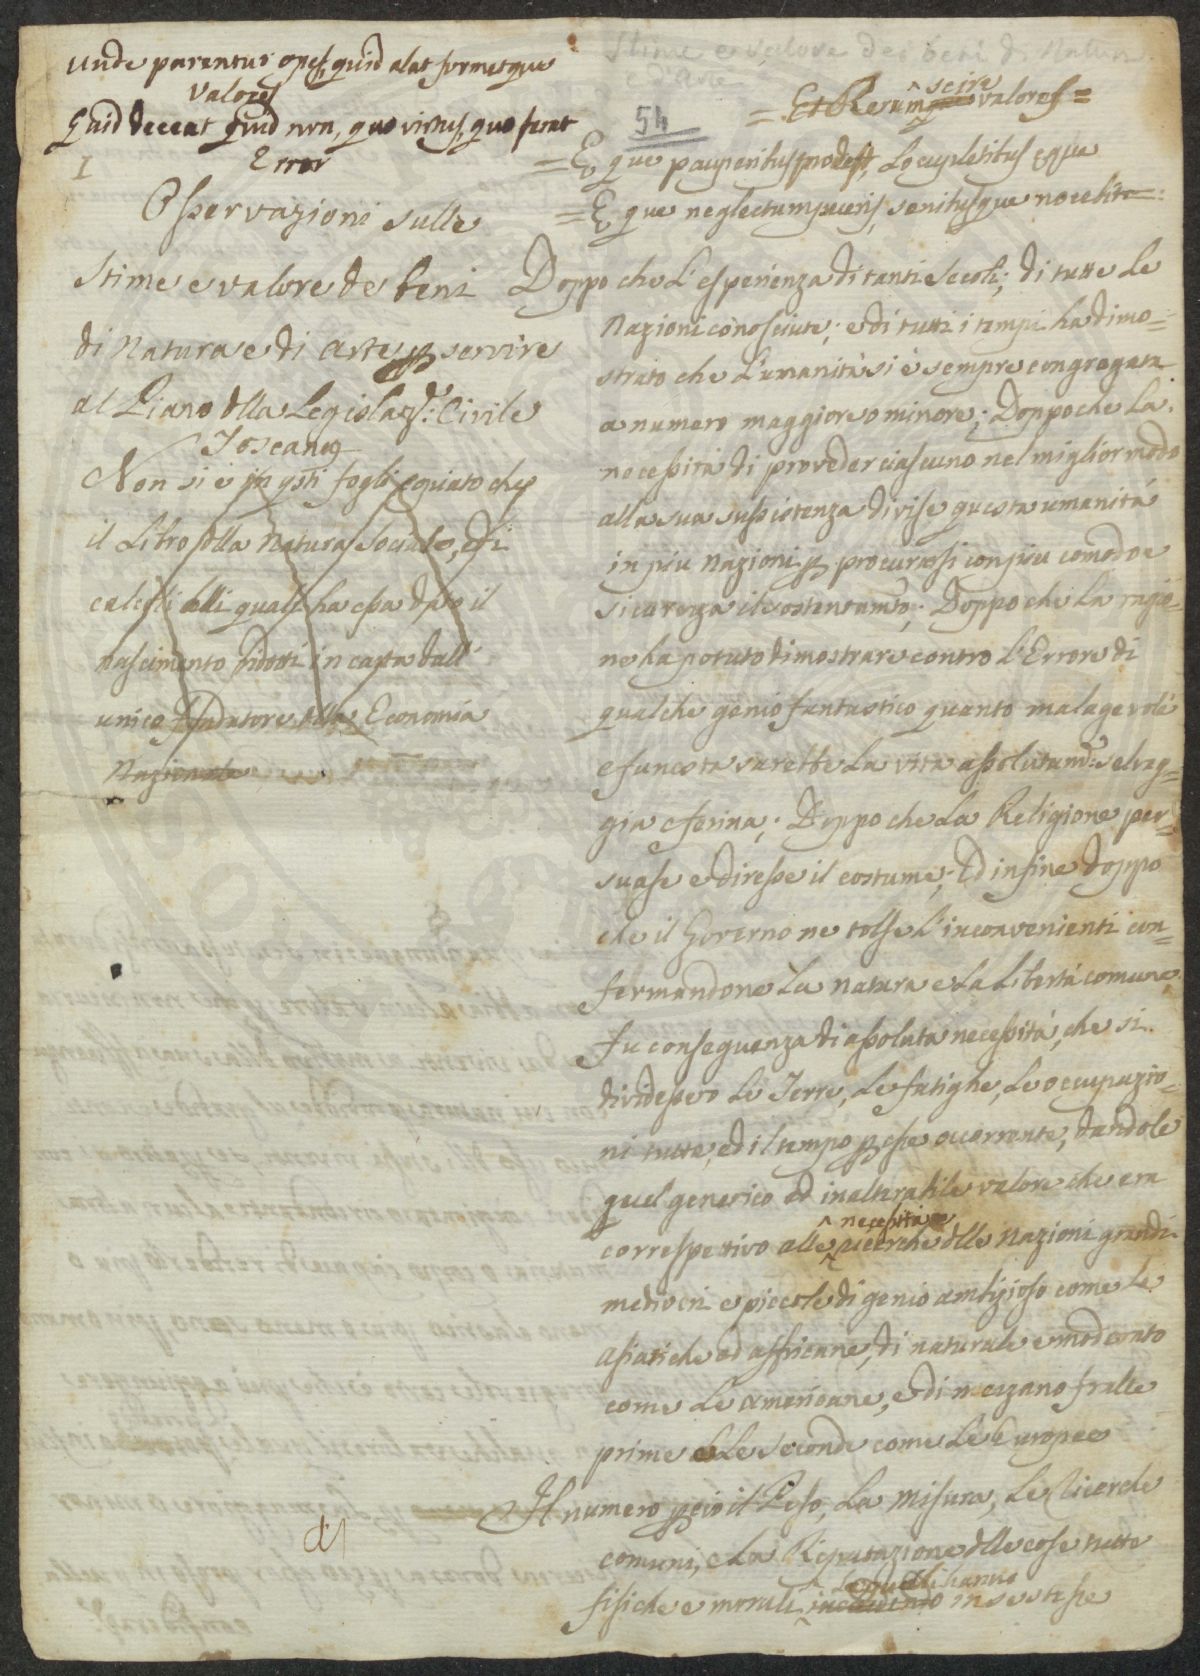 Unde parentur opes, quid alat formetque
Valores
Quid deceat quid non, quo virtus, quo ferat
Error
I
Osservazioni sulle
Stime e valore de beni
di Natura e di Arte p servire
al Piano dlla Legislaz.e Civile
Toscana
Non si è in qsti fogli copiato che
il Libro dlla Natura Sociale, e
calcoli alli quali ha essa dato il
nascimento ridotti in carta dall'
unico fondatore dlla Economia
Nazionale
Stime e valore dei beni di Natura
e d'Arte
54
scire
= Et Rerumque valores =
= Eque pauperibus prodest, Locupletibus eque
= Eque neglectum pueris, senibusque nocebit =
Doppo che L'esperienza di tanti secoli; di tutte Le
Nazioni conosciute; e di tutti i tempi ha dimo=
strato che L'umanità si è sempre congregata
a numero maggiore o minore; Doppo che La
necessità di proveder ciascuno nel miglior modo
alla sua sussistenza divise questa umanità
in più Nazioni p procurarsi con più comodo e
sicurezza il sostentamto; Doppo che La ragio=
ne ha potuto dimostrare contro L'Errore di
qualche genio fantastico quanto malagevole
e funesta sarebbe La vita assolutamte selvag=
gia e ferina; Doppo che La Religione per=
suase e diresse il costume; Ed infine doppo
che il Governo ne tolse L'inconvenienti con=
fermandone La natura e La Libertà comune,
fu conseguenza di assoluta necessità, che si
dividessero Le Terre, Le fatighe, Le occupazio=
ni tutte, ed il tempo p esse occorrente, dandole
quel generico ed inalterabile valore che era
necessità e
correspettivo alle ricerche dlle Nazioni grandi
mediocri e piccole di genio ambizioso come Le
Asiatiche ed affricane, di naturale e moderato
come Le Americane, e di mezzano fralle
prime e Le seconde come Le Europee
Il numero pciò il Peso, La Misura, Le Ricerche
comuni, e La Riputazione dlle cose tutte
Le quali hanno
fisiche e morali in se stesse